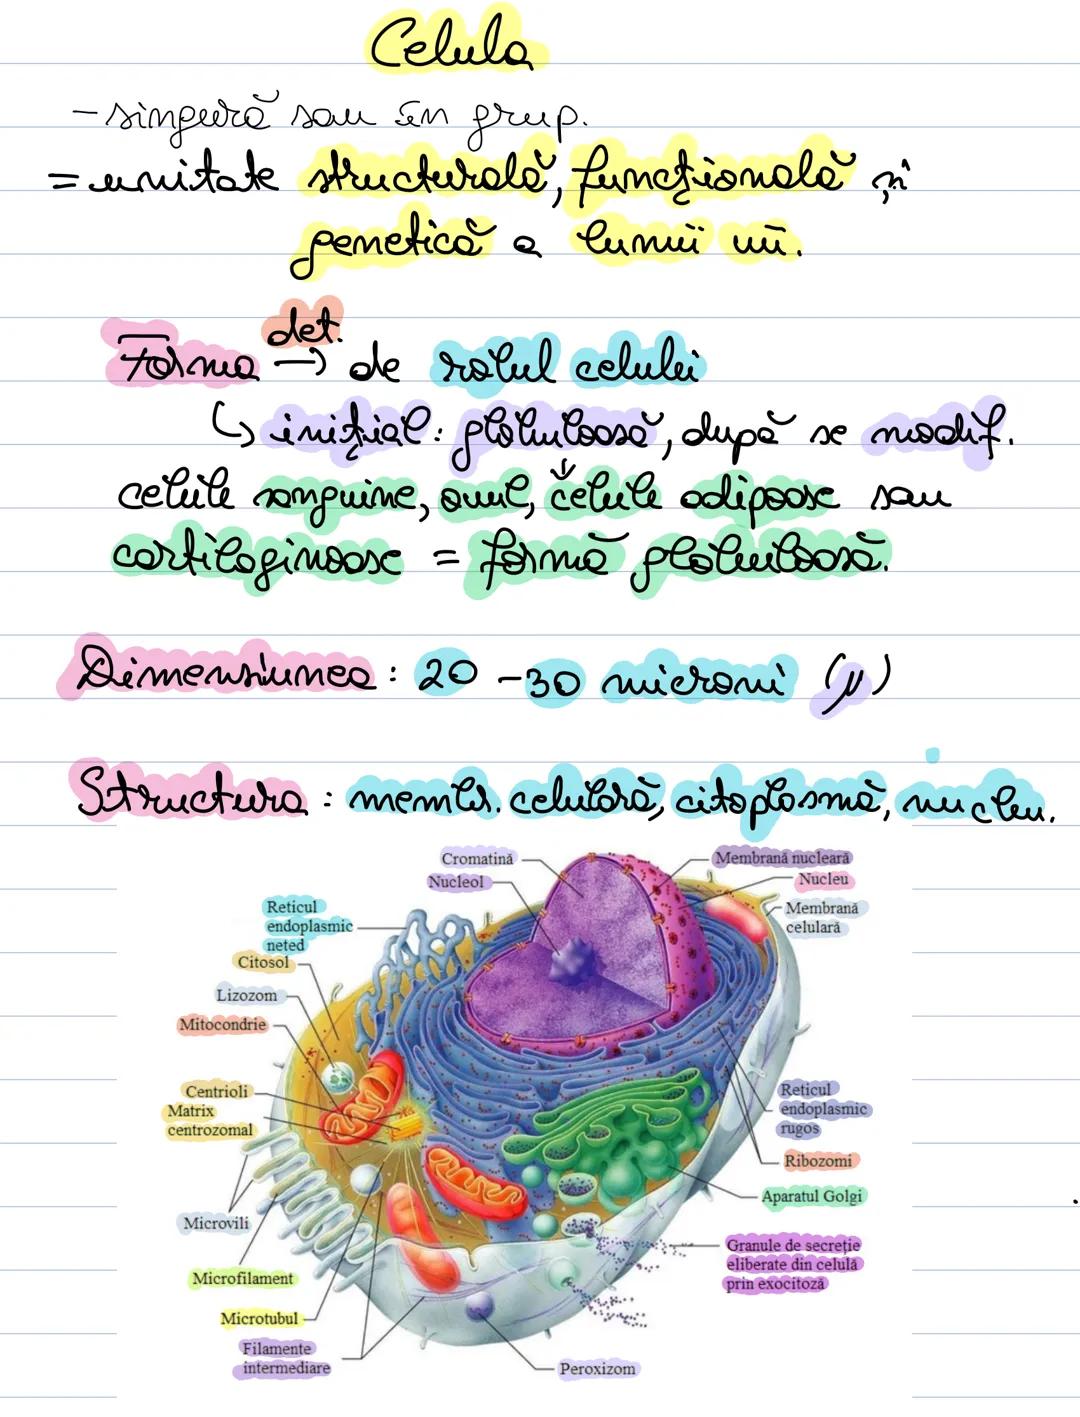 Celula
- singură sau în grup.
= unitate structurală, funcțională și
genetică a lumii vii.
det.
Forma → de rolul celulei
↳ inițial: globuloasă, după se modif.
celule sanguine, ovul, celule adipoase sau
cartilaginoase = formă globuloasă.
Dimensiunea: 20 - 30 microni (μ)
Structura: membr. celulară, citoplasmă, nucleu.
Cromatină
Nucleol
Membrană nucleară
Nucleu
Membrană
celulară
Reticul
endoplasmic
neted
Citosol
Lizozom
Mitocondrie
Centrioli
Matrix
centrozomal
Microvili
Microfilament
Microtubul
Filamente
intermediare
Reticul
endoplasmic
rugos
Ribozomi
Aparatul Golgi
Granule de secreție
eliberate din celulă
prin exocitoză
Peroxizom